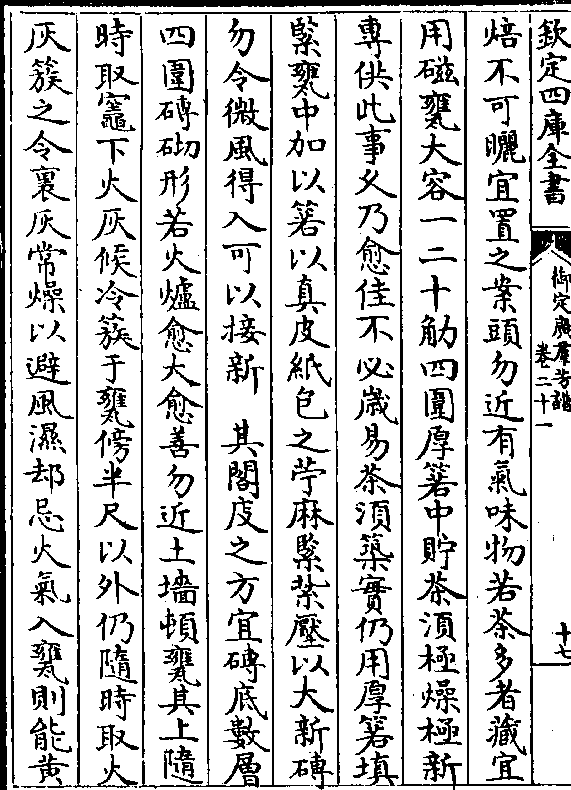 欽定四庫全書
御定廣羣芳譜
卷二十一
十七
焙不可曬宜置之案頭勿近有氣味物若茶多者藏宜
用磁甕大容一二十觔四圍厚箬中貯茶湏極燥極新
專供此事乆乃愈佳不必歳易茶湏築實仍用厚箬填
緊甕中加以箬以真皮紙包之苧麻緊紮壓以大新磚
勿令微風得入可以接新　其閣庋之方宜磚底數層
四圍磚砌形若火爐愈大愈善勿近土墻頓甕其上隨
時取竈下火灰候冷簇于甕傍半尺以外仍隨時取火
灰簇之令裏灰常燥以避風濕却忌火氣入甕則能黄